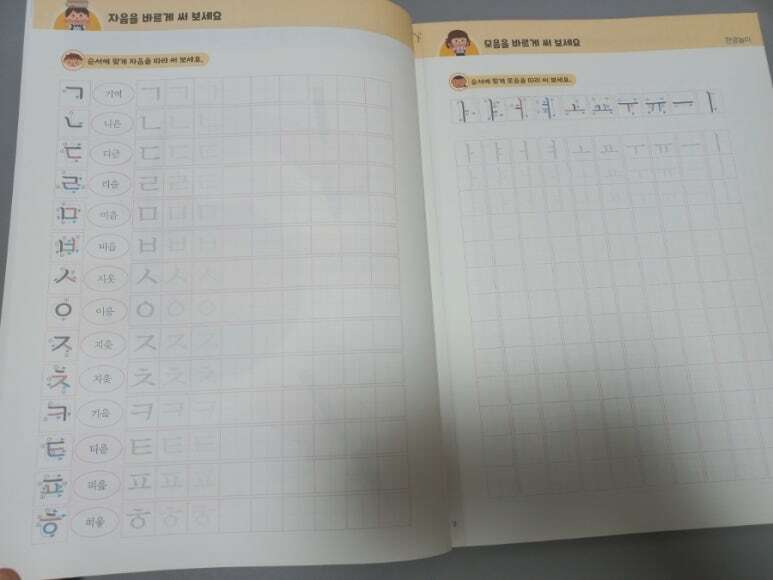 자음을 바르게 써 보세요
순서에 맞게 자음을 따라 써 보세요.
ㄱ 기역 ㄱ ㄱ ㄱ
ㄴ 니은 ㄴ ㄴ ㄴ
ㄷ 디귿 ㄷ ㄷ ㄷ
ㄹ 리을 ㄹ ㄹ ㄹ
ㅁ 미음 ㅁ ㅁ ㅁ
ㅂ 비읍 ㅂ ㅂ ㅂ
ㅅ 시옷 ㅅ ㅅ ㅅ
ㅇ 이응 ㅇ ㅇ ㅇ
ㅈ 지읒 ㅈ ㅈ ㅈ
ㅊ 치읓 ㅊ ㅊ ㅊ
ㅋ 키읔 ㅋ ㅋ ㅋ
ㅌ 티읕 ㅌ ㅌ ㅌ
ㅍ 피읖 ㅍ ㅍ ㅍ
ㅎ 히읗 ㅎ ㅎ ㅎ
모음을 바르게 써 보세요
한글놀이
순서에 맞게 모음을 따라 써 보세요.
ㅏ ㅑ ㅓ ㅕ ㅗ ㅛ ㅜ ㅠ ㅡ ㅣ
ㅏ ㅑ ㅓ ㅕ ㅗ ㅛ ㅜ ㅠ ㅡ ㅣ
ㅏ ㅑ ㅓ ㅕ ㅗ ㅛ ㅜ ㅠ ㅡ ㅣ